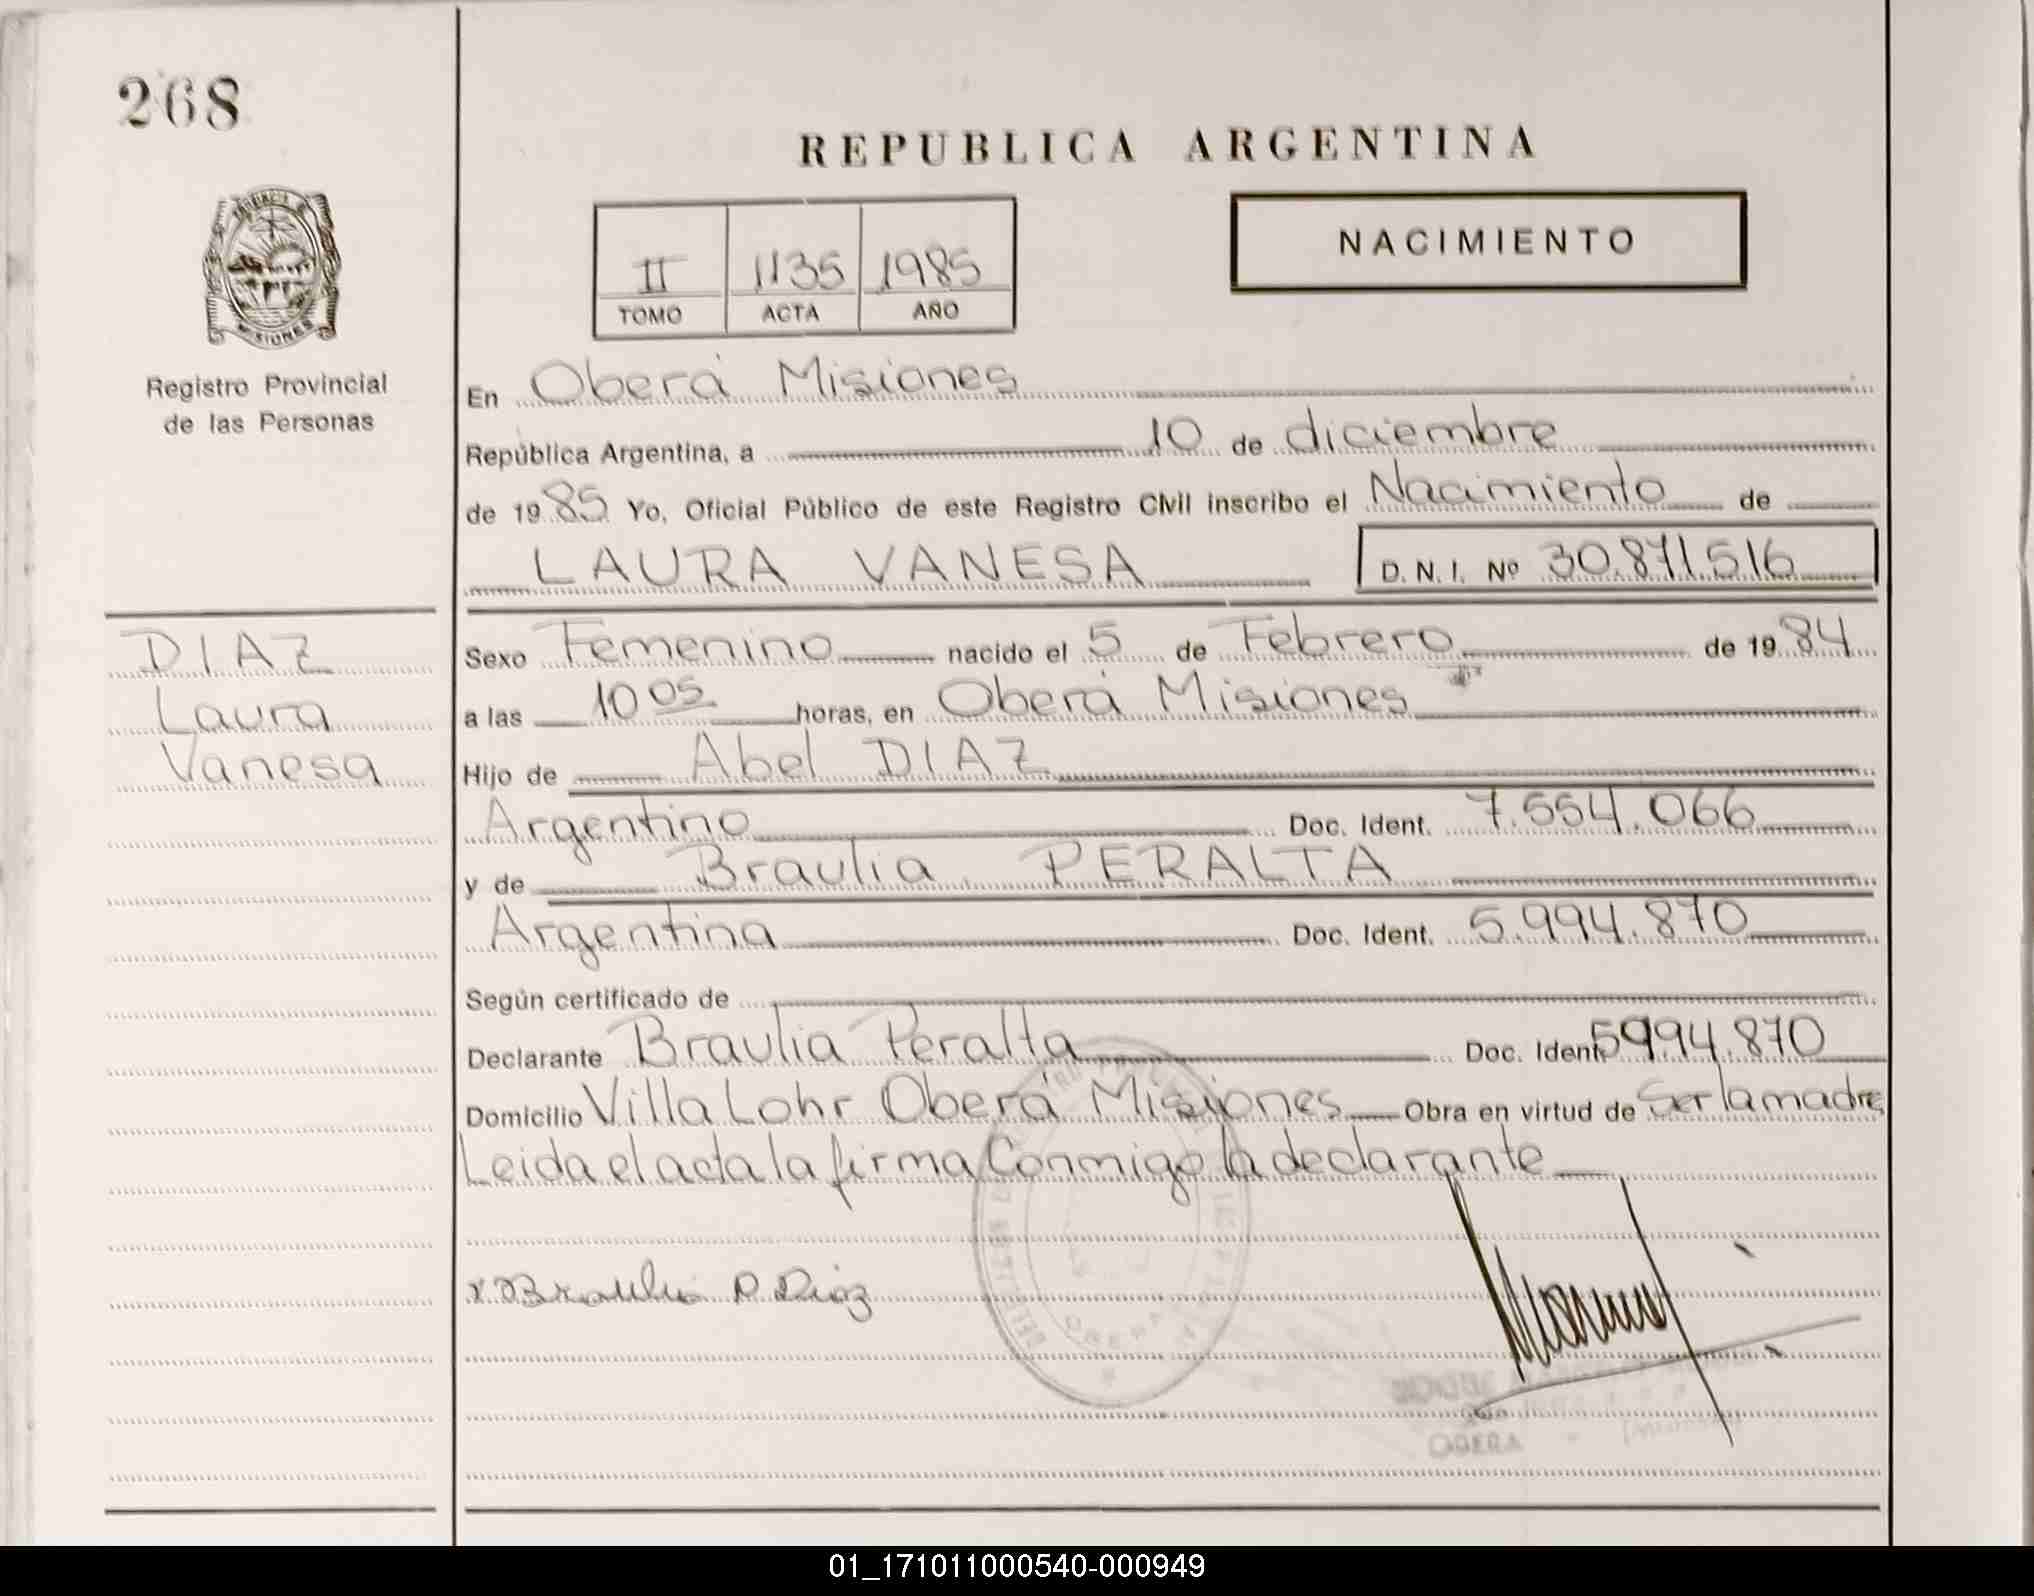 268
REPUBLICA ARGENTINA
NACIMIENTO
II 1135 1985
TOMO ACTA AÑO
MISIONES
Registro Provincial
de las Personas
En Oberá Misiones
República Argentina, a 10 de diciembre
de 1985 Yo, Oficial Público de este Registro Civil inscribo el Nacimiento de
LAURA VANESA D. N. I. Nº 30.871.516
DIAZ
Laura
Vanesa
Sexo Femenino nacido el 5 de Febrero de 1984
a las 10 05 horas, en Oberá Misiones
Hijo de Abel DIAZ
Argentino Doc. Ident. 7.554.066
y de Braulia PERALTA
Argentina Doc. Ident. 5.994.870
Según certificado de
Declarante Braulia Peralta Doc. Ident. 5994.870
Domicilio Villa Lohr Oberá Misiones Obra en virtud de Ser la madre
Leida el acta la firma Conmigo la declarante
x Braulia P. Diaz
OBERA
OBERA
01_171011000540-000949